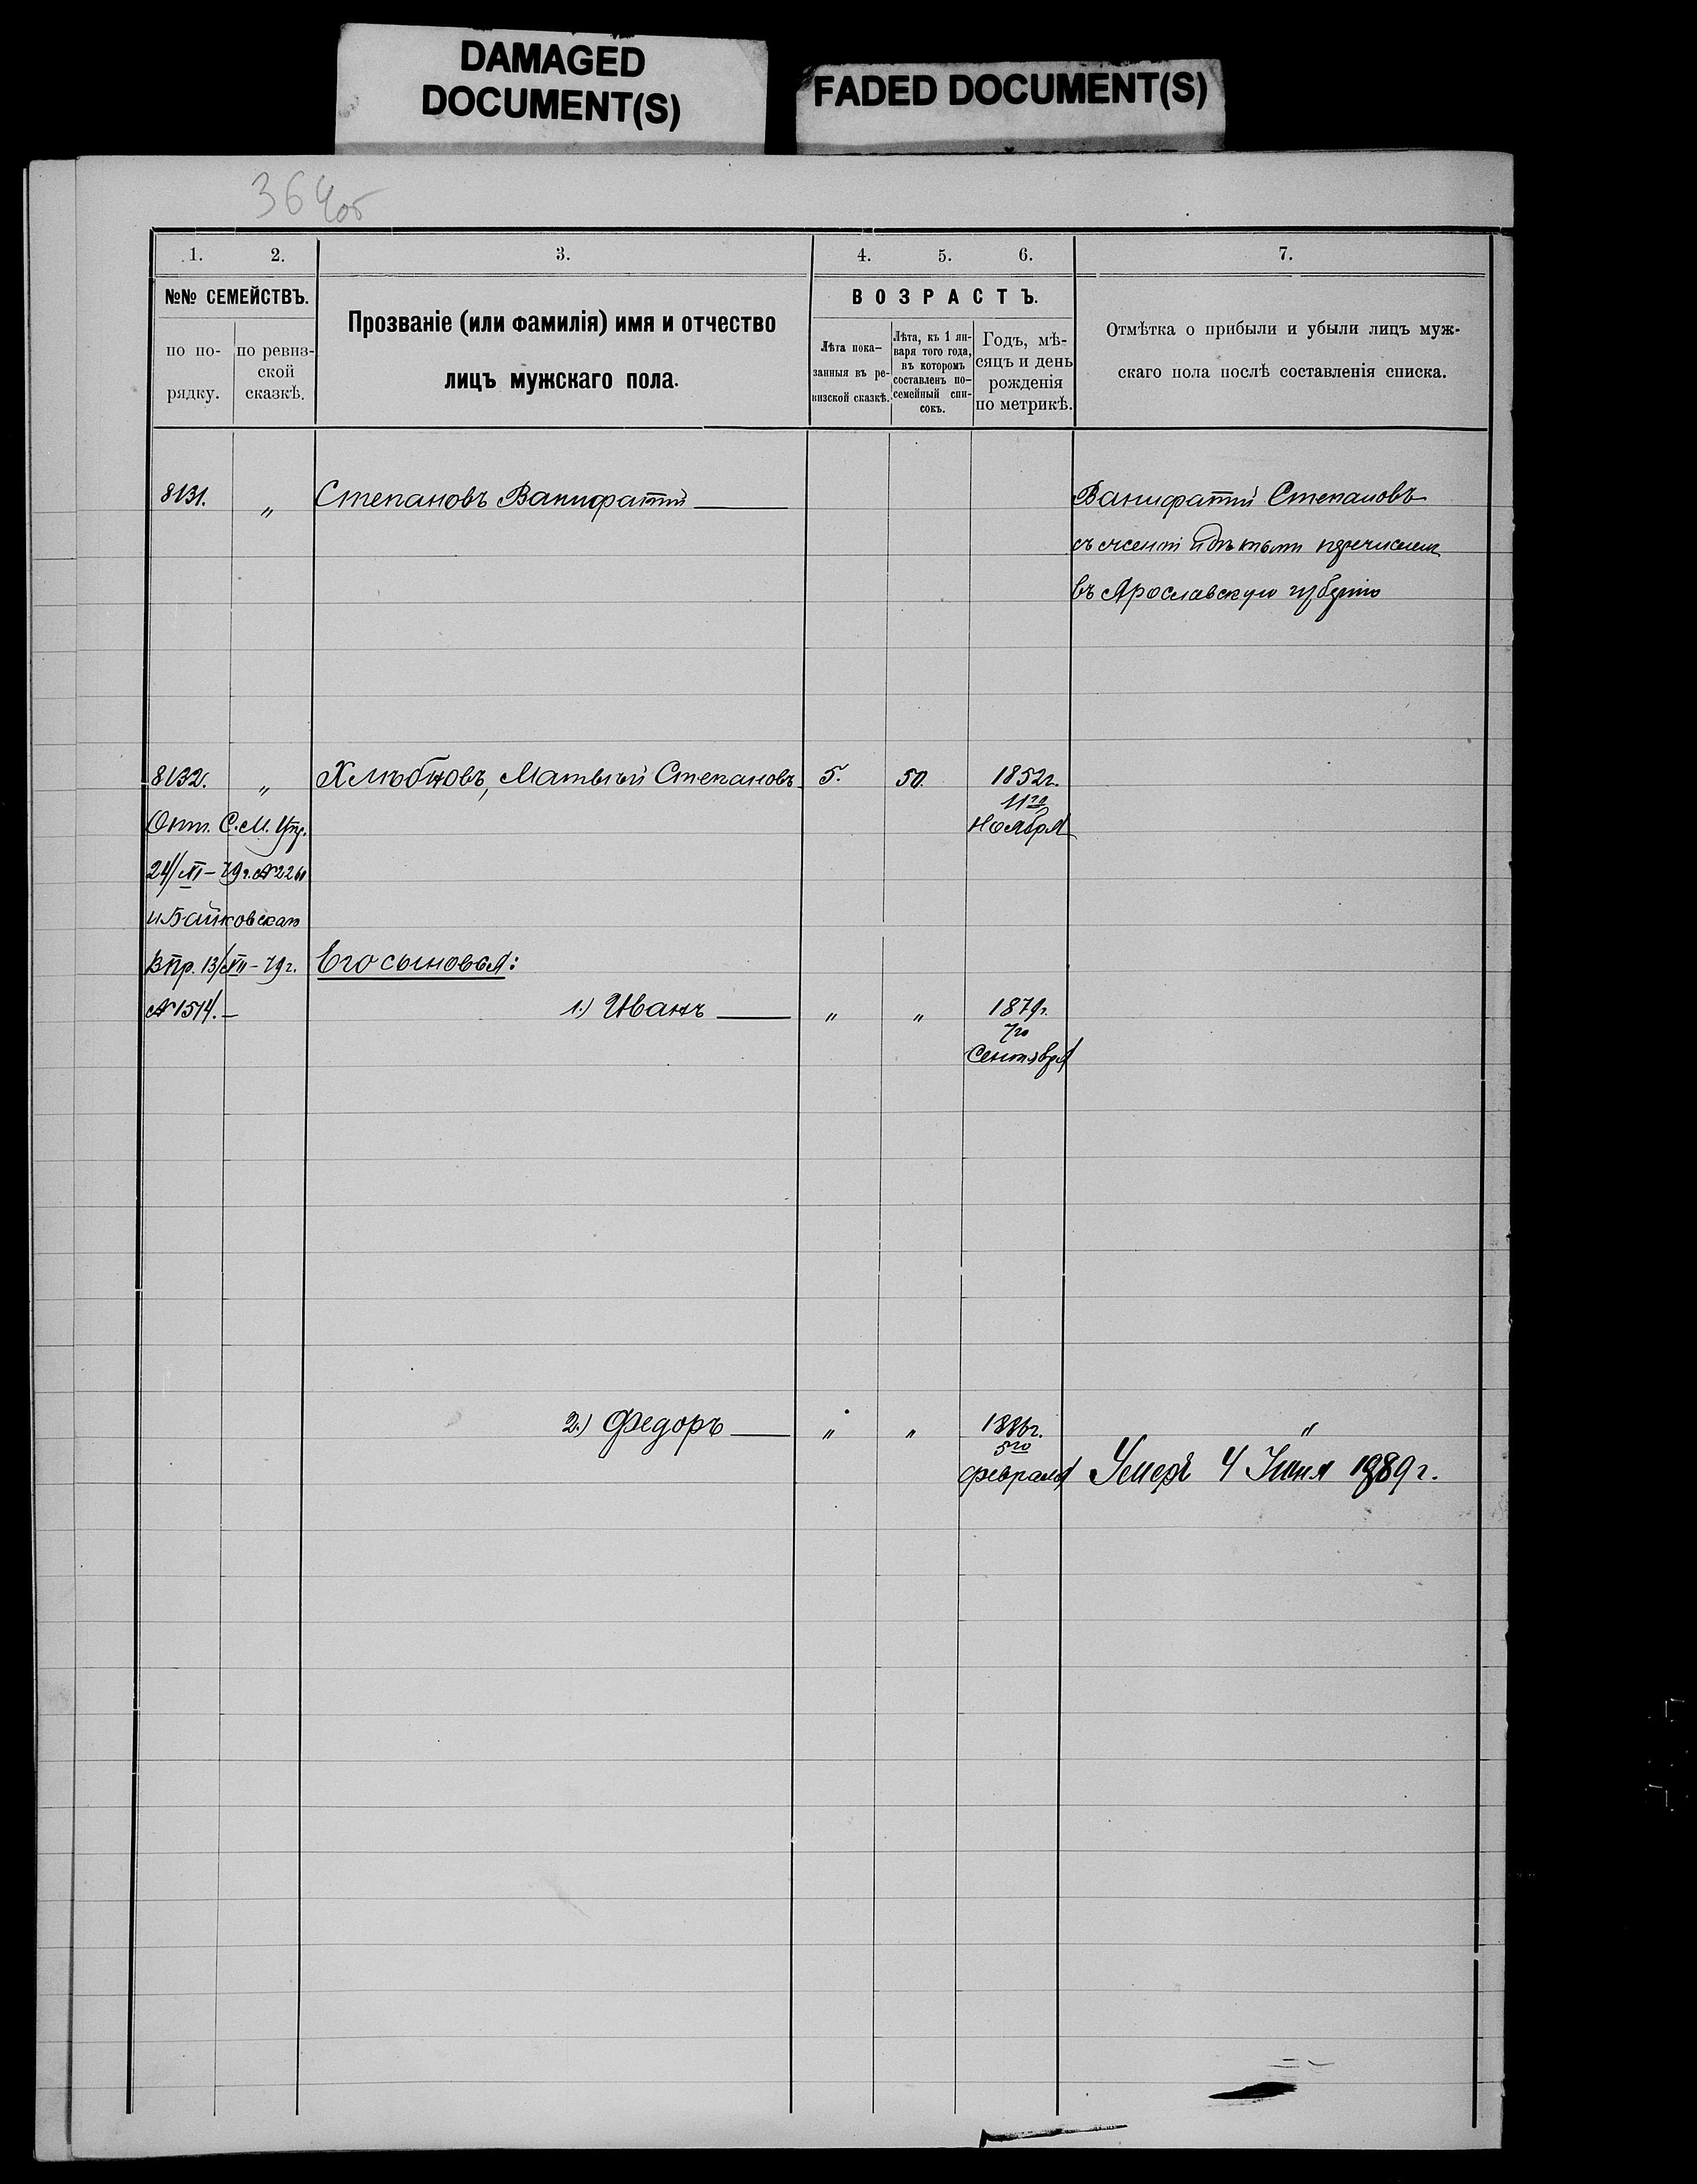 DAMAGED
DOCUMENT(S)
FADED DOCUMENT(S)
364об
1. 2. 3. 4. 5. 6. 7.
№№ СЕМЕЙСТВЪ.
по по-
рядку.
по ревиз-
ской
сказкѣ.
Прозваніе (или фамилія) имя и отчество
лицъ мужскаго пола.
ВОЗРАСТЪ.
Лѣта пока-
занныя въ ре-
визской сказкѣ.
Лѣта, къ 1 ян-
варя того года,
въ которомъ
составленъ по-
семейный спи-
сокъ.
Годъ, мѣ-
сяцъ и день
рожденія
по метрикѣ.
Отмѣтка о прибыли и убыли лицъ муж-
скаго пола послѣ составленія списка.
8131. „ Степановъ Ванифатій
Ванифатій Степановъ
съ женой и дѣтьми перечислен
въ Ярославскую губернію
8132. „ Хлѣбцовъ, Матвѣй Степановъ 5. 50. 1852г.
11го
Ноября
Опт. С. М. Упр.
24/XI-79г. №2260
и Байковская
В. Пр. 13/XII-79г.
№1514.
Его сыновья:
1.) Иванъ „ „ 1879г.
7го
Сентября
2.) Федоръ „ „ 1886г. „
5го
февраля
Умеръ 4 Іюня 1989г.